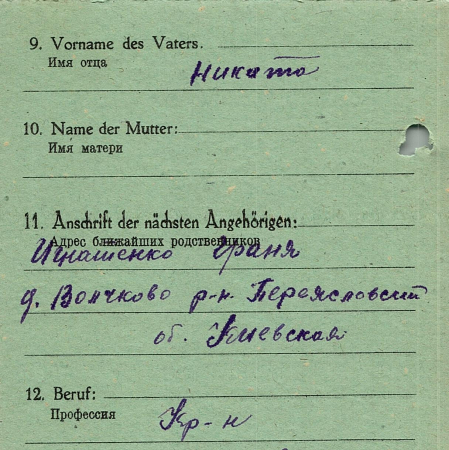 9. Vorname des Vaters.
Имя отца
Никита
10. Name der Mutter:
Имя матери
11. Anschrift der nächsten Angehörigen:
Адрес ближайших родственников
Игнашенко Франя
д. Волчково р-н. Переясловский
об. Киевская
12. Beruf:
Профессия
Кр-н